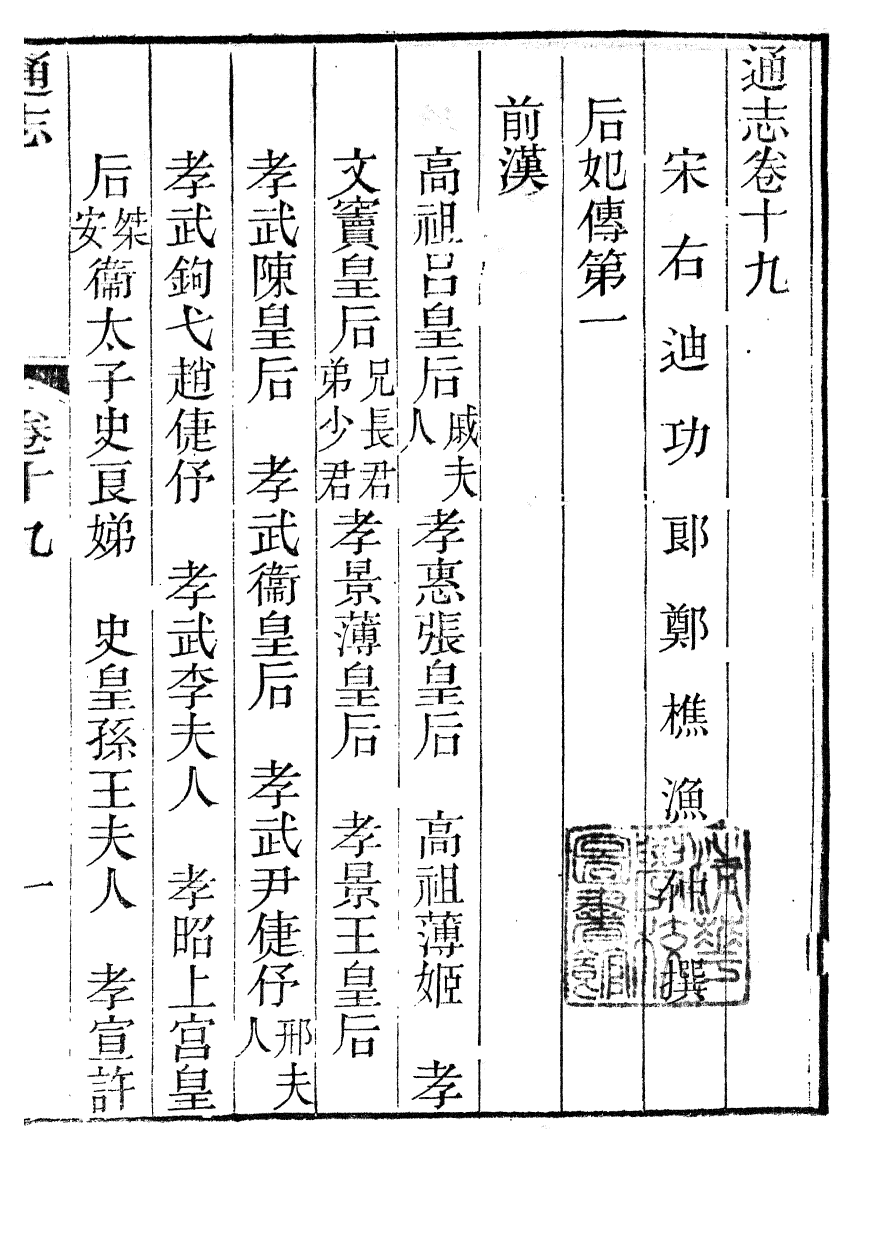 通志卷十九
宋右迪功郎鄭樵漁仲撰
后妃傳第一
前漢
高祖呂皇后戚夫人孝惠張皇后 高祖薄姬 孝
文竇皇后兄長君弟少君孝景薄皇后 孝景王皇后
孝武陳皇后 孝武衞皇后 孝武尹倢伃邢夫人
孝武鉤弋趙倢伃 孝武李夫人 孝昭上官皇
后桀安衞太子史良娣 史皇孫王夫人 孝宣許
通志
卷十九
一
圖書館